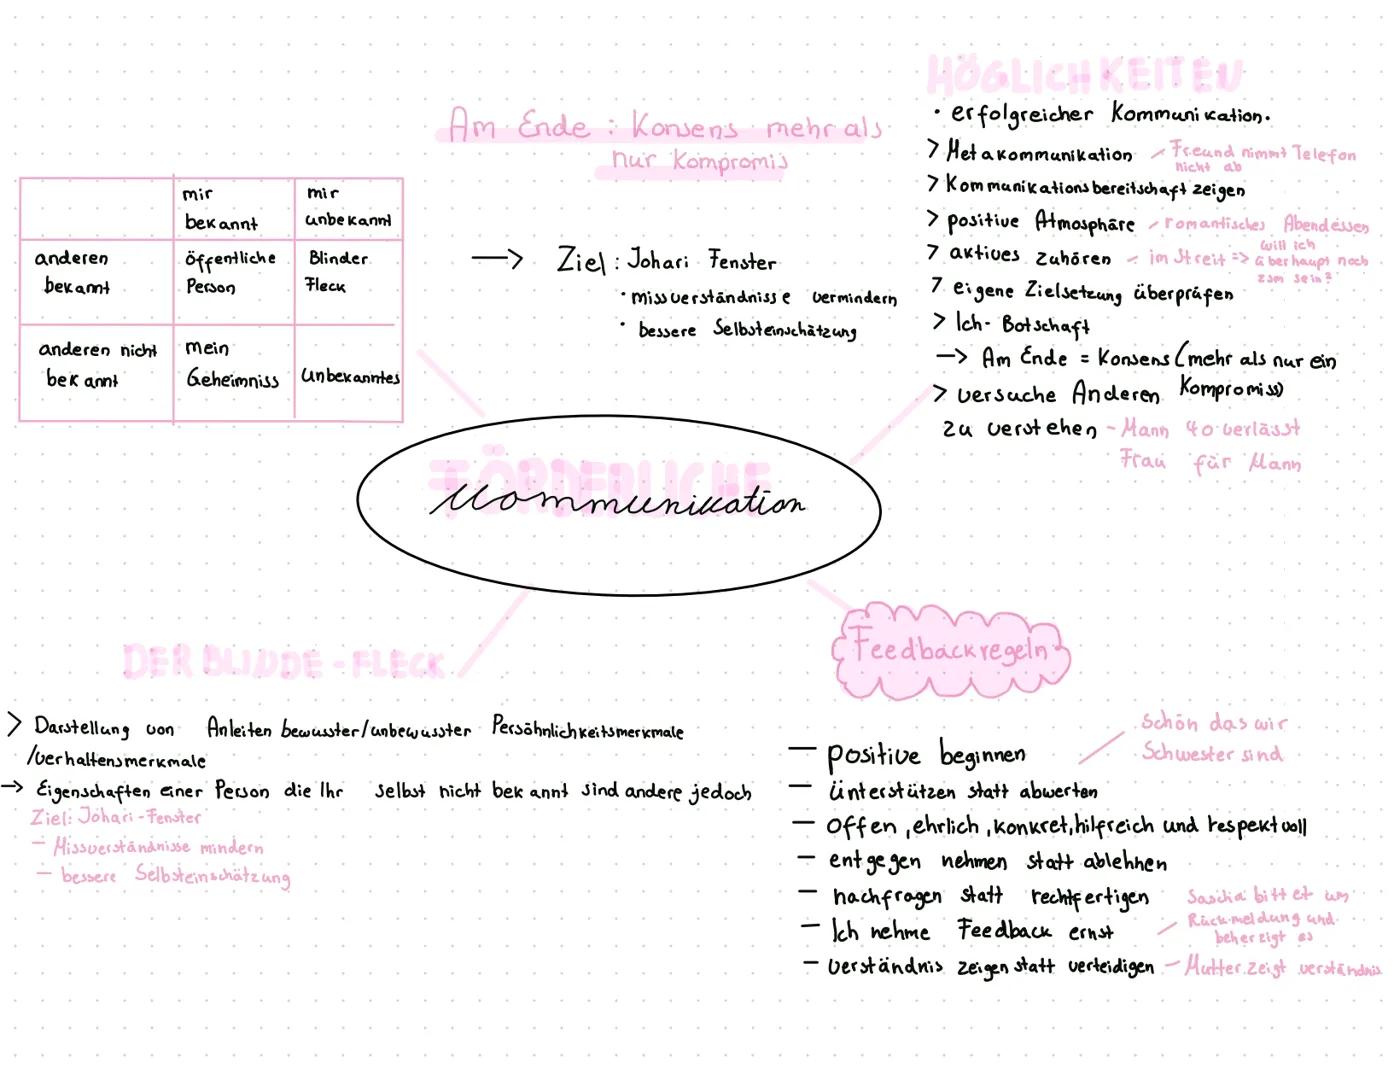 HÖGLICHKEITEN
Am Ende : Konsens mehr als
nur Kompromis
• erfolgreicher Kommunikation.
> Metakommunikation - Freund nimmt Telefon
nicht ab
> Kommunikationsbereitschaft zeigen
> positive Atmosphäre - romantisches Abendessen
> aktives zuhören - im Streit => will ich
überhaupt noch
zsm sein?
> eigene Zielsetzung überprüfen
> Ich-Botschaft
-> Am Ende = Konsens (mehr als nur ein
Kompromiss)
> versuche Anderen
zu verstehen - Mann 40 verlässt
Frau für Mann
mir bekannt
mir unbekannt
anderen bekannt
öffentliche Person
Blinder Fleck
anderen nicht bekannt
mein Geheimniss
Unbekanntes
-> Ziel : Johari Fenster
• missverständnisse vermindern
• bessere Selbsteinschätzung
FÖRDERLICHE
Kommunikation
DER BLINDE-FLECK
> Darstellung von Anleiten bewusster/unbewusster Persöhnlichkeitsmerkmale
/verhaltensmerkmale
-> Eigenschaften einer Person die Ihr selbst nicht bekannt sind andere jedoch
Ziel: Johari-Fenster
- Missverständnisse mindern
- bessere Selbsteinschätzung
Feedbackregeln
Schön das wir
Schwester sind
- positive beginnen
- Ünterstützen statt abwerten
- Offen, ehrlich, konkret, hilfreich und respektvoll
- entgegen nehmen statt ablehnen
- nachfragen statt rechtfertigen
- Ich nehme Feedback ernst - Sascha bittet um
Rückmeldung und
beherzigt es
- verständnis zeigen statt verteidigen - Mutter zeigt verständnis